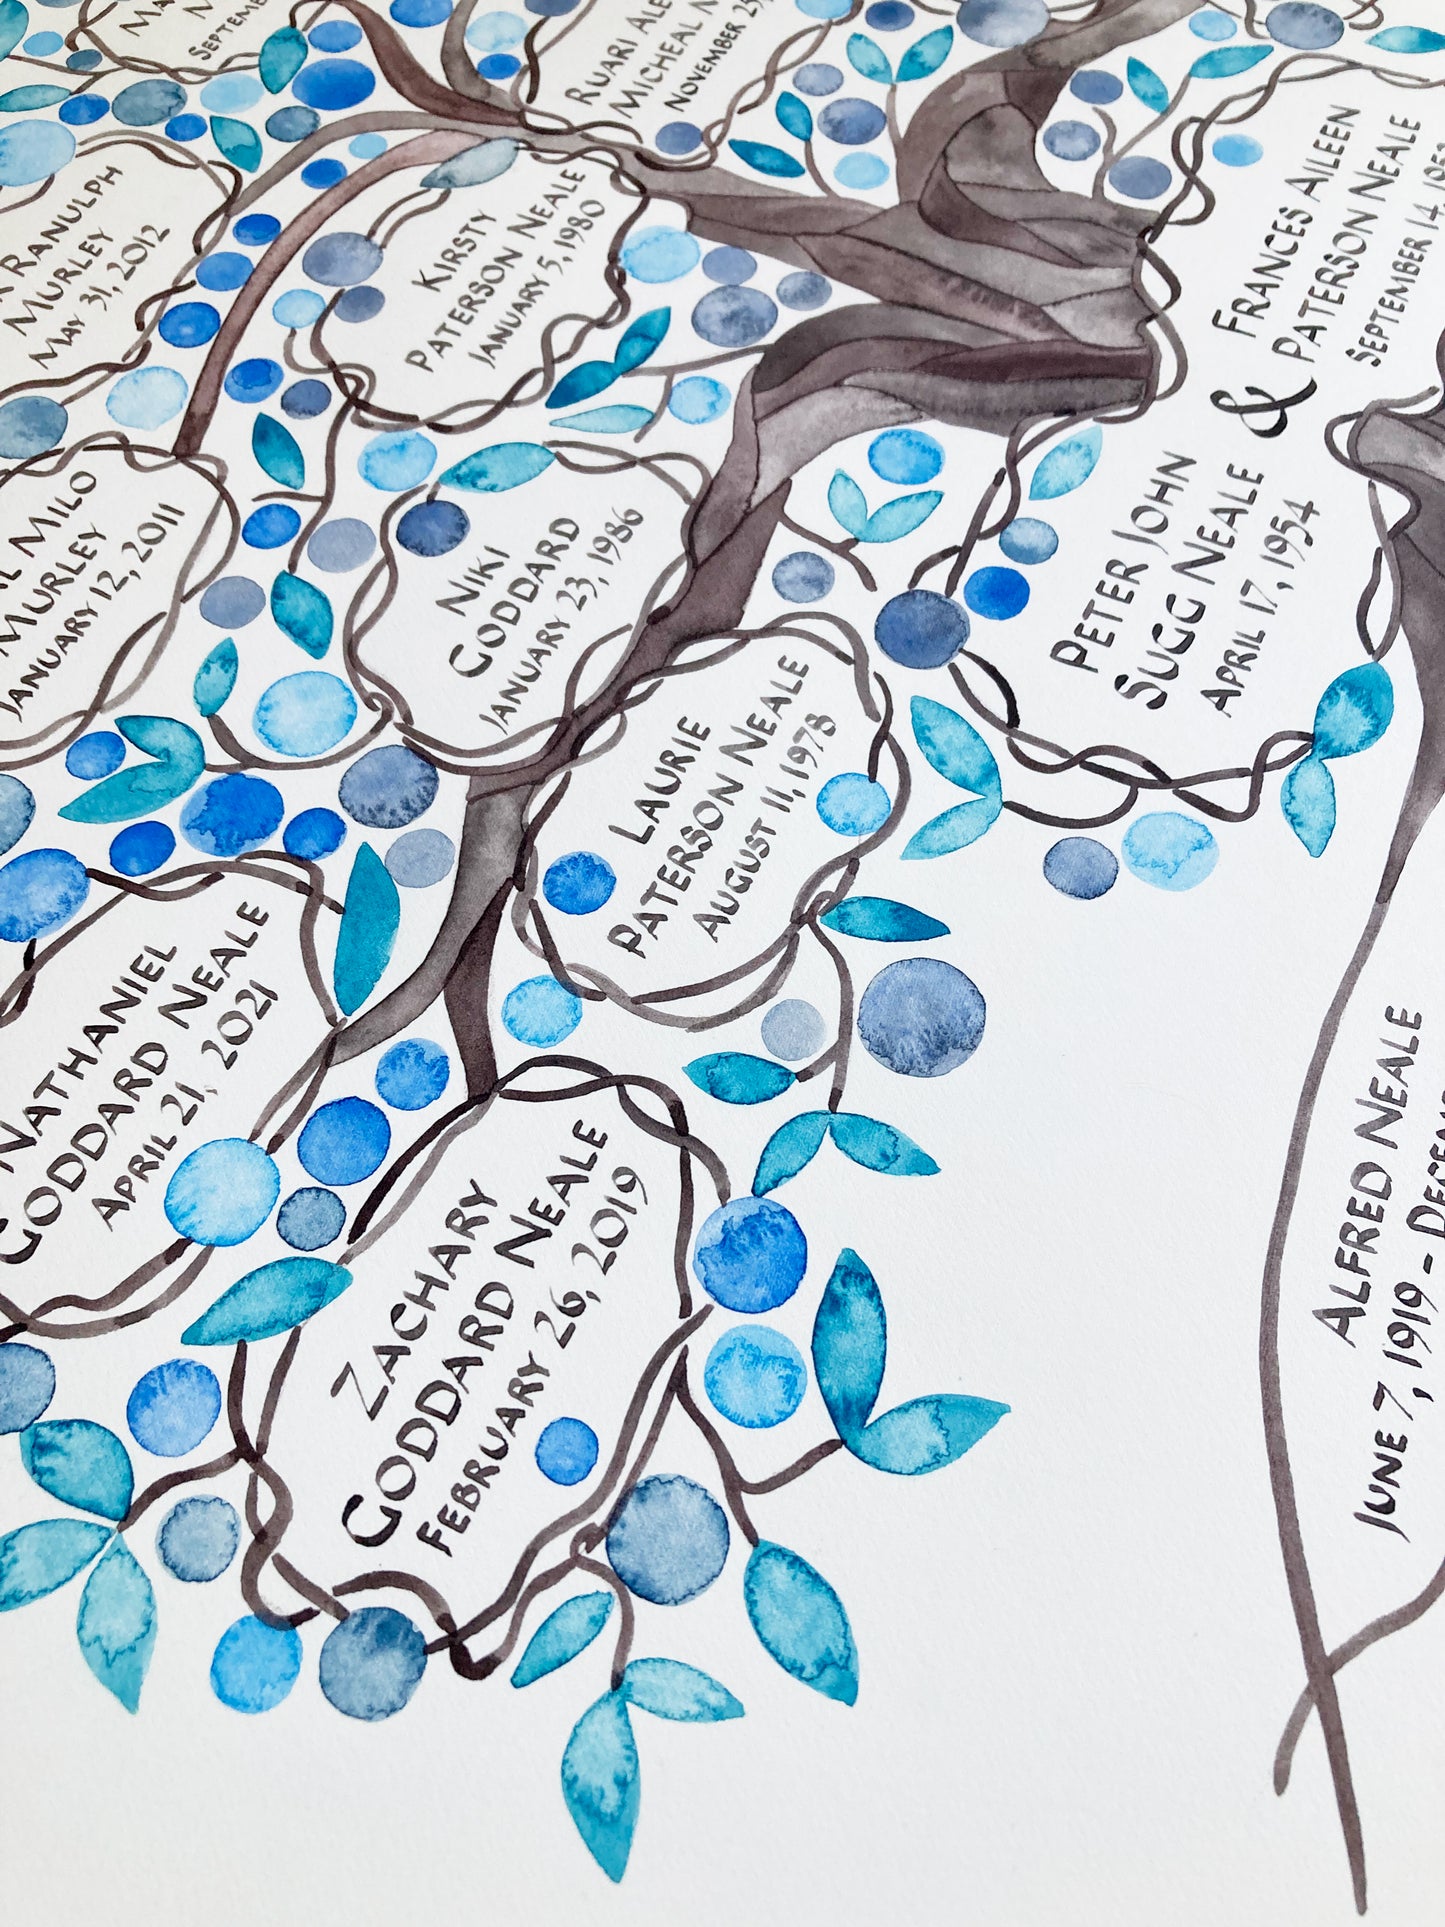 SEPTEMBE
RUARI ALE
MICHEAL
NOVEMBER
RANULPH
MURLEY
MAY 31, 2012
KIRSTY
PATERSON NEALE
JANUARY 5, 1980
FRANCES AILEEN
PATERSON NEALE
SEPTEMBER 14, 195
&
PETER JOHN
SUGG NEALE
APRIL 17, 1954
MILO
MURLEY
JANUARY 12, 2011
NIKI
GODDARD
JANUARY 23, 1986
LAURIE
PATERSON NEALE
AUGUST 11, 1978
NATHANIEL
GODDARD NEALE
APRIL 21, 2021
ZACHARY
GODDARD NEALE
FEBRUARY 26, 2019
ALFRED NEALE
JUNE 7, 1919 - DECEM